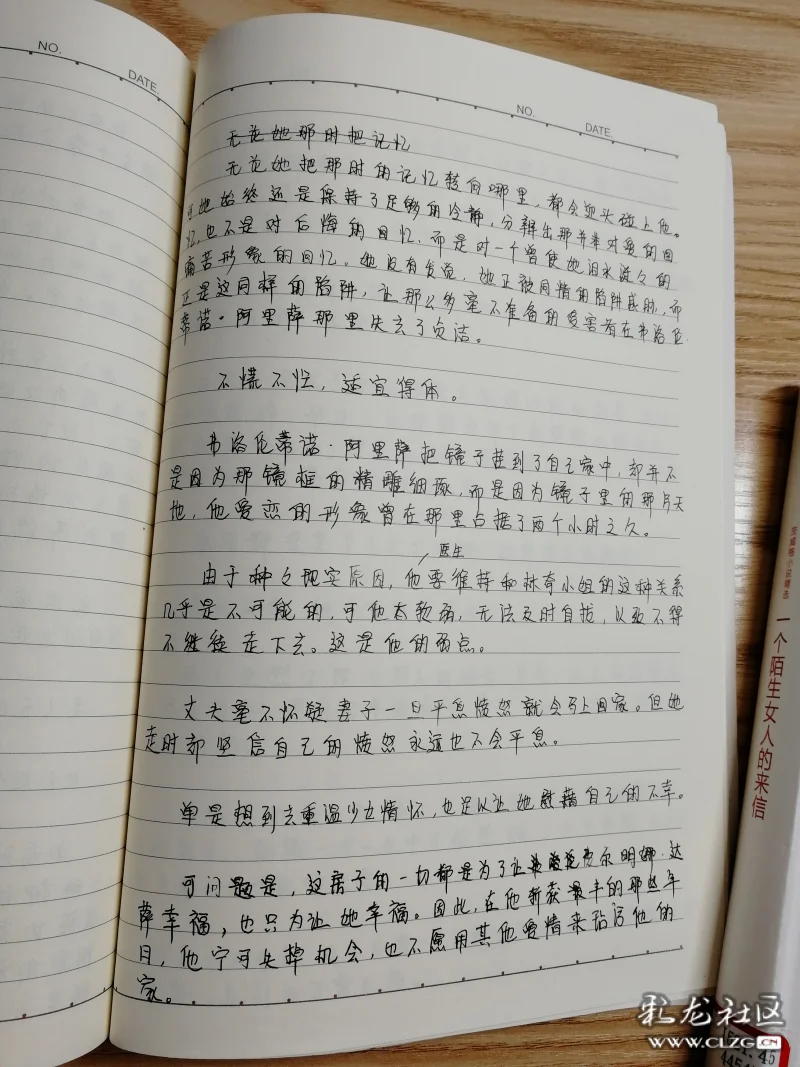 NO.
DATE.
NO.
DATE.
无论她那时把记忆
无论她把那时的记忆转向哪里，都会迎头碰上他。
可她始终还是保持了足够的冷静，分辨出那并非对爱的回
忆，也不是对后悔的回忆，而是对一个曾使她泪水涟々的
痛苦形象的回忆。她没有发觉，她正被同情的陷阱威胁，而
正是这同样的陷阱，让那么多毫不准备的受害者在弗洛伦
蒂诺·阿里萨那里失去了贞洁。
不慌不忙，适宜得体。
弗洛伦蒂诺·阿里萨把镜子挂到了自己家中，却并不
是因为那镜框的精雕细琢，而是因为镜子里的那片天
地，他爱恋的形象曾在那里占据了两个小时之久。
医生
由于种々现实原因，他要维持和林奇小姐的这种关系
几乎是不可能的，可他太软弱，无法及时自拔，以致不得
不继续走下去。这是他的弱点。
丈夫毫不怀疑妻子一旦平息愤怒就会马上回家。但她
走时却坚信自己的愤怒永远也不会平息。
单是想到去重温少女情怀，也足以让她慰藉自己的不幸。
可问题是，这房子的一切都是为了让费尔明娜·达
萨幸福，也只为让她幸福。因此，在他斩获最丰的那些年
日，他宁可失掉机会，也不愿用其他爱情来玷污他的
家。
茨威格小说精选
一个陌生女人的来信
彩龙社区
www.CLZG.CN